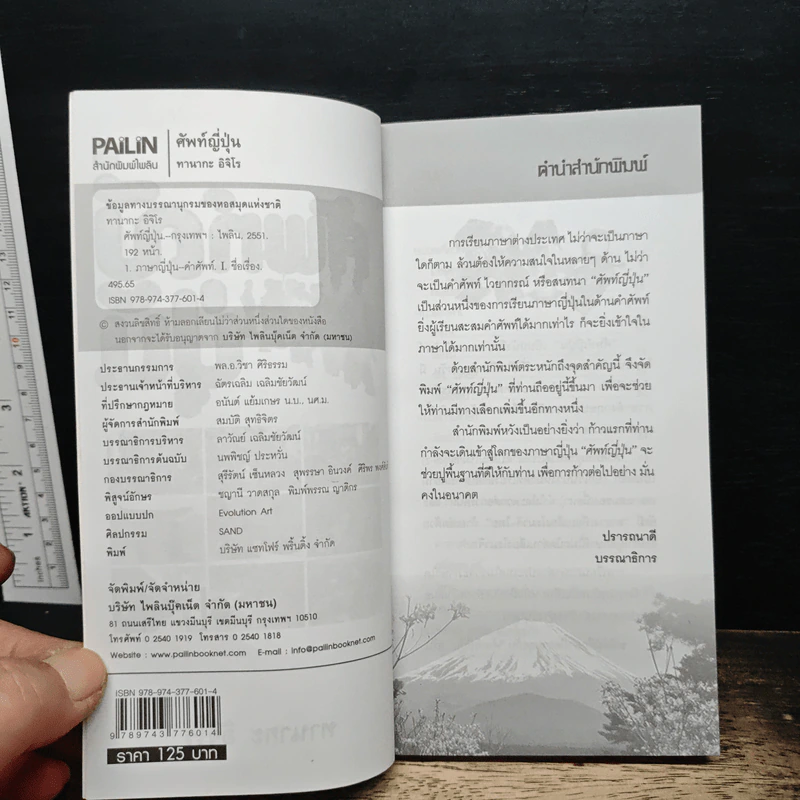 PAiLiN
สำนักพิมพ์ไพลิน
ศัพท์ญี่ปุ่น
ทานากะ อิจิโร
ข้อมูลทางบรรณานุกรมของหอสมุดแห่งชาติ
ทานากะ อิจิโร
ศัพท์ญี่ปุ่น.–กรุงเทพฯ : ไพลิน, 2551.
192 หน้า.
1. ภาษาญี่ปุ่น–คำศัพท์. I. ชื่อเรื่อง.
495.65
ISBN 978-974-377-601-4
© สงวนลิขสิทธิ์ ห้ามลอกเลียนไม่ว่าส่วนหนึ่งส่วนใดของหนังสือ
นอกจากจะได้รับอนุญาตจาก บริษัท ไพลินบุ๊คเน็ต จำกัด (มหาชน)
ประธานกรรมการ พล.อ.วิชา ศิริธรรม
ประธานเจ้าหน้าที่บริหาร ฉัตรเฉลิม เฉลิมชัยวัฒน์
ที่ปรึกษากฎหมาย อนันต์ แย้มเกษร น.บ., นศ.ม.
ผู้จัดการสำนักพิมพ์ สมบัติ สุทธิจิตร
บรรณาธิการบริหาร ลาวัณย์ เฉลิมชัยวัฒน์
บรรณาธิการต้นฉบับ นพพิชญ์ ประหวั่น
กองบรรณาธิการ สุรีรัตน์ เซ็นหลวง สุพรรษา อินวงค์ ศิริพร
พิสูจน์อักษร ชญานี วาดสกุล พิมพ์พรรณ ญาติกร
ออกแบบปก Evolution Art
ศิลปกรรม SAND
พิมพ์ บริษัท แซทโฟร์ พริ้นติ้ง จำกัด
จัดพิมพ์/จัดจำหน่าย
บริษัท ไพลินบุ๊คเน็ต จำกัด (มหาชน)
81 ถนนเสรีไทย แขวงมีนบุรี เขตมีนบุรี กรุงเทพฯ 10510
โทรศัพท์ 0 2540 1919 โทรสาร 0 2540 1818
Website : www.pailinbooknet.com E-mail : info@pailinbooknet.com
ISBN 978-974-377-601-4
9 789743 776014
ราคา 125 บาท
คำนำสำนักพิมพ์
การเรียนภาษาต่างประเทศ ไม่ว่าจะเป็นภาษา
ใดก็ตาม ล้วนต้องให้ความสนใจในหลายๆ ด้าน ไม่ว่า
จะเป็นคำศัพท์ ไวยากรณ์ หรือสนทนา “ศัพท์ญี่ปุ่น”
เป็นส่วนหนึ่งของการเรียนภาษาญี่ปุ่นในด้านคำศัพท์
ยิ่งผู้เรียนสะสมคำศัพท์ได้มากเท่าไร ก็จะยิ่งเข้าใจใน
ภาษาได้มากเท่านั้น
ด้วยสำนักพิมพ์ตระหนักถึงจุดสำคัญนี้ จึงจัด
พิมพ์ “ศัพท์ญี่ปุ่น” ที่ท่านถืออยู่นี้ขึ้นมา เพื่อจะช่วย
ให้ท่านมีทางเลือกเพิ่มขึ้นอีกทางหนึ่ง
สำนักพิมพ์หวังเป็นอย่างยิ่งว่า ก้าวแรกที่ท่าน
กำลังจะเดินเข้าสู่โลกของภาษาญี่ปุ่น “ศัพท์ญี่ปุ่น” จะ
ช่วยปูพื้นฐานที่ดีให้กับท่าน เพื่อการก้าวต่อไปอย่าง มั่น
คงในอนาคต
ปรารถนาดี
บรรณาธิการ